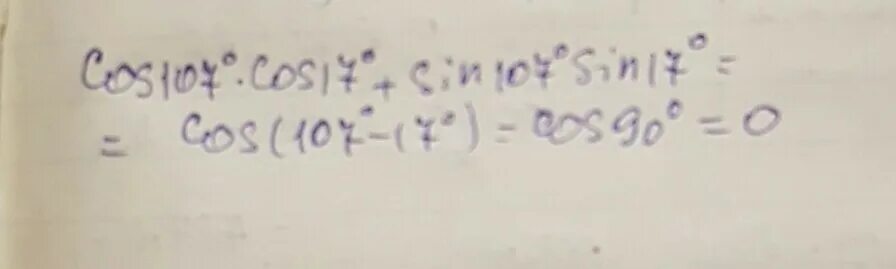 Cos107°·Cos17°+Sin107°Sin17°=
= Cos(107°-17°)=cos90°=0